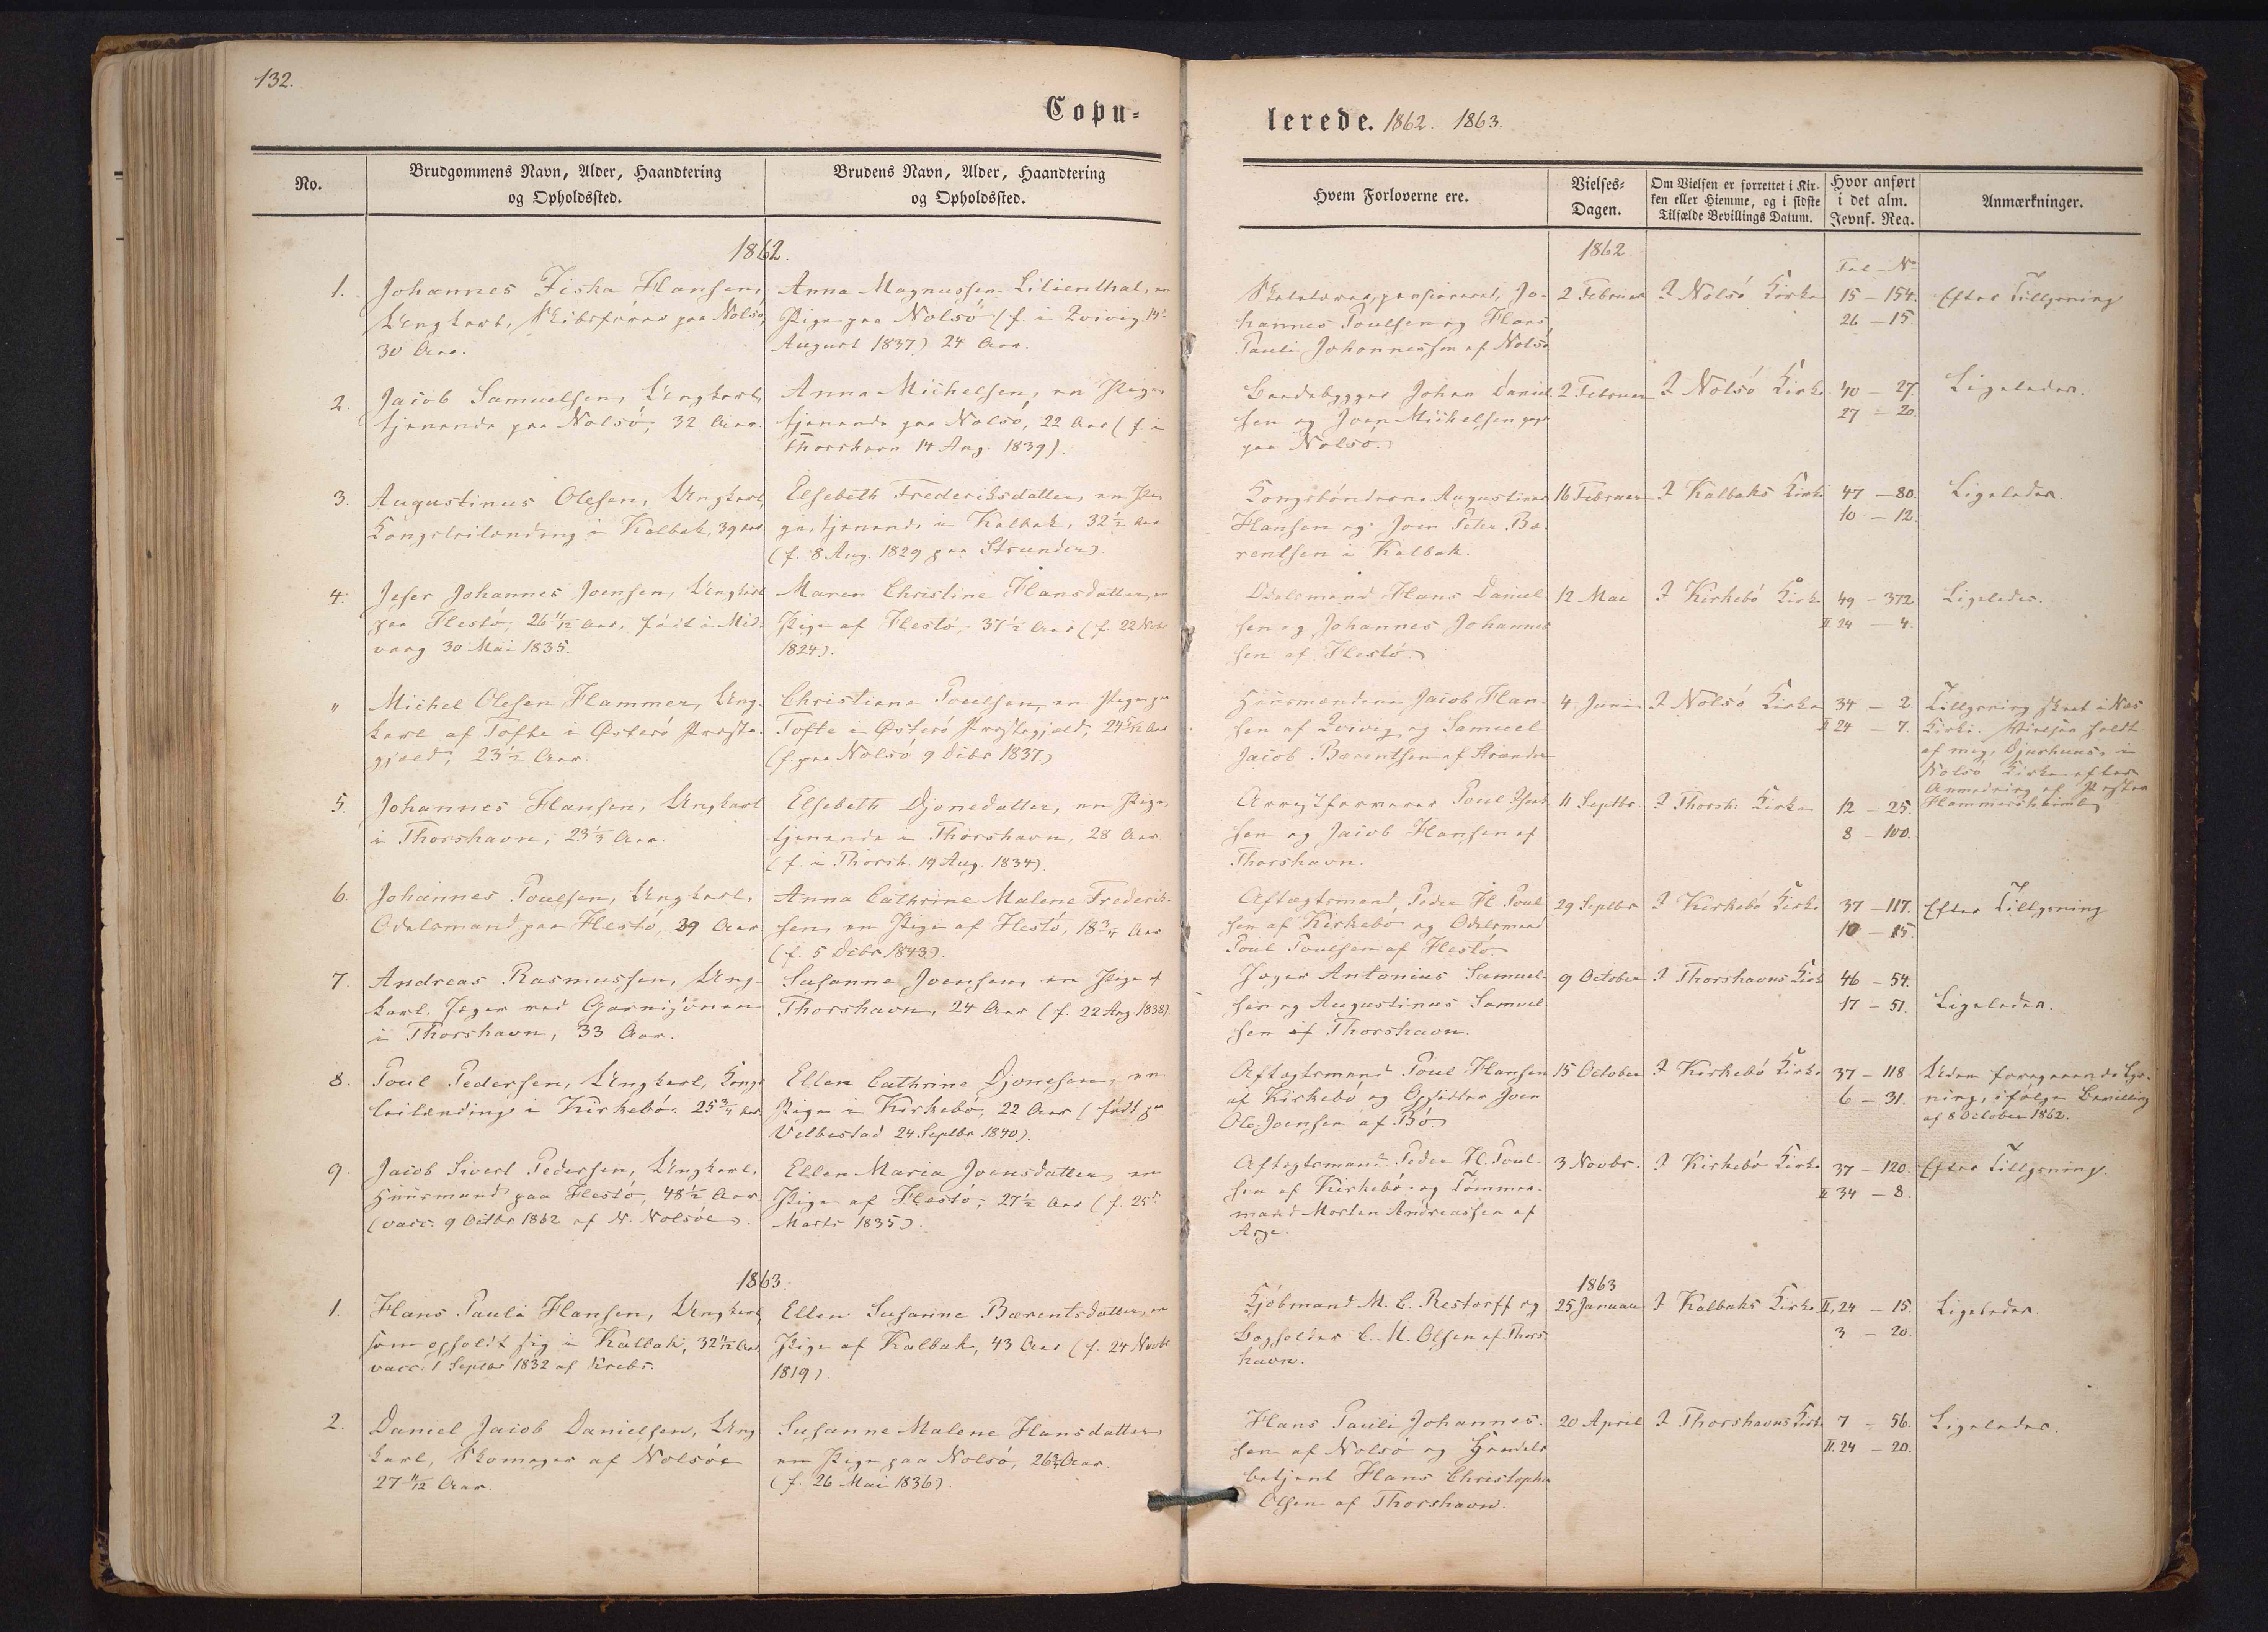 132.
Copu-
lerede. 1862. 1863.
No.
Brudgommens Navn, Alder, Haandtering
og Opholdssted.
Brudens Navn, Alder, Haandtering
og Opholdssted.
Hvem Forloverne ere.
Vielses-
Dagen.
Om Vielsen er forrettet i Kir-
ken eller Hiemme, og i sidste
Tilfælde Bevillings Datum.
Hvor anført
i det alm.
Jevnf. Reg.
Anmærkninger.
1862.
1.
Johannes Fiska Hansen,
Ungkarl, Skibsfører paa Nolsø,
30 Aar.
Anna Magnussen Lilienthal, en
Pige paa Nolsö (f. i Qvivig 14
August 1837) 24 Aar.
Skolelærer, pensioneret, Jo-
hannes Poulsen og Hans
Pauli Johannessen af Nolsö
1862.
2 Februar
I Nolsö Kirke
Fol - No
15 - 154.
26 - 15.
Efter Tillysning
2.
Jacob Samuelsen, Ungkarl,
tjenende paa Nolsö, 32 Aar.
Anna Michelsen, en Pige,
tjenende paa Nolsö, 22 Aar (f. i
Thorshavn 14 Aug. 1839).
Baadebygger Johan Daniel
sen og Joen Michelsen
paa Nolsö.
2 Februar
I Nolsö Kirke
40 - 27.
27 - 20.
Ligeledes.
3.
Augustinus Olesen, Ungkarl,
Kongsleilending i Kalbak, 39 Aar
Elsebeth Frederiksdatter, en Pi-
ge, tjenende i Kalbak, 32 1/2 Aar
(f. 8 Aug. 1829 paa Strender).
Kongsbönderne Augustinus
Hansen og Joen Peter Bæ-
rentsen i Kalbak.
16 Februar
I Kalbaks Kirke
47 - 80.
10 - 12.
Ligeledes.
4.
Jeser Johannes Joensen, Ungkarl
paa Hestö, 26 11/12 Aar, född i Mid-
vaag 30 Mai 1835.
Maren Christine Hansdatter, en
Pige af Hestö, 37 1/2 Aar (f. 22 Novbr
1824).
Odelsmand Hans Daniel
sen og Johannes Johannes
sen af Hestö.
12 Mai
I Kirkebö Kirke
49 - 372
II 24 - 4.
Ligeledes.
"
Michel Olesen Hammer, Ung-
karl af Tofte i Österö Præste-
gjeld, 23 1/2 Aar.
Christiane Poulsen, en Pige paa
Tofte i Österö Præstegjeld, 24 5/12 Aar
(f. paa Nolsö 9 Decbr 1837.)
Huusmændene Jacob Han-
sen af Qvivig og Samuel
Jacob Bærentsen af Strender
4 Juni
I Nolsö Kirke
34 - 2.
II 24 - 7.
Tillysning skeet i Næs
Kirke. Vielsen holdt
af mig, Djurhuus, i
Nolsö Kirke efter
Anmodning af Pastor
Hammershaimb
5.
Johannes Hansen, Ungkarl
i Thorshavn, 23 1/3 Aar.
Elsebeth Djonedatter, en Pige,
tjenende i Thorshavn, 28 Aar
(f. i Thorsh. 19 Aug. 1834).
Poul Jsak
sen og Jacob Hansen af
Thorshavn.
11 Septbr.
I Thorsh. Kirke
12 - 25.
8 - 100.
6.
Johannes Poulsen, Ungkarl,
Odelsmand paa Hestö, 29 Aar
Anna Cathrine Malene Frederik-
sen, en Pige af Hestö, 18 3/4 Aar
(f. 5 Decbr 1843).
Aftægtsmand, Peder H. Poul
sen af Kirkebö og Odelsmand
Poul Poulsen af Hestö.
29 Septbr
I Kirkebö Kirke
37 - 117.
10 - 15.
Efter Tillysning
7.
Andreas Rasmussen, Ung-
karl, Jæger ved Garnisonen
i Thorshavn, 33 Aar.
Susanne Joensen, en Pige af
Thorshavn, 24 Aar (f. 22 Aug. 1838)
Jæger Antonius Samuel-
sen og Augustinus Samuel
sen af Thorshavn.
9 October
I Thorshavns Kirke
46 - 54.
17 - 51.
Ligeledes.
8.
Poul Pedersen, Ungkarl, Kongs
leilending i Kirkebö. 25 3/4 Aar
Ellen Cathrine Djonesen, en
Pige i Kirkebö, 22 Aar (född paa
Velbestad 24 Septbr 1840).
Aftægtsmand Poul Hansen
af Kirkebö og Opsidder Joen
Ole Joensen af Bö.
15 October
I Kirkebö Kirke
37 - 118
6 - 31.
Uden foregaaende Lys-
ning, ifölge Bevilling
af 8 October 1862.
9.
Jacob Sivert Pedersen, Ungkarl,
Huusmand paa Hestö, 48 1/2 Aar
(vacc. 9 Octbr 1862 af N. Nolsöe).
Ellen Maria Joensdatter, en
Pige af Hestö, 27 1/2 Aar (f. 25
Marts 1835).
Aftægtsmand Peder H. Poul-
sen af Kirkebö og Tömmer-
mand Morten Andreassen af
Arge.
3 Novbr.
I Kirkebö Kirke
37 - 120.
II 34 - 8.
Efter Tillysning.
1863.
1.
Hans Pauli Hansen, Ungkarl,
som opholdt sig i Kalbak, 32 11/12 Aar
vacc. 1 Septbr 1832 af Krebs.
Ellen Susanne Bærentsdatter, en
Pige af Kalbak, 43 Aar (f. 24 Novbr
1819).
Kjöbmand M. C. Restorff og
Bogholder C. M. Olsen af Thors
havn.
1863
25 Januar
I Kalbaks Kirke
II, 24 - 15.
3 - 20.
Ligeledes.
2.
Daniel Jacob Danielsen, Ung
karl, Skomager af Nolsöe
27 11/12 Aar.
Susanne Malene Hansdatter,
en Pige paa Nolsö, 26 3/4 Aar.
(f. 26 Mai 1836).
Hans Pauli Johannes-
sen af Nolsö og Handels
betjent Hans Christopher
Olsen af Thorshavn.
20 April
I Thorshavns Kirke
7 - 56.
II. 24 - 20.
Ligeledes.